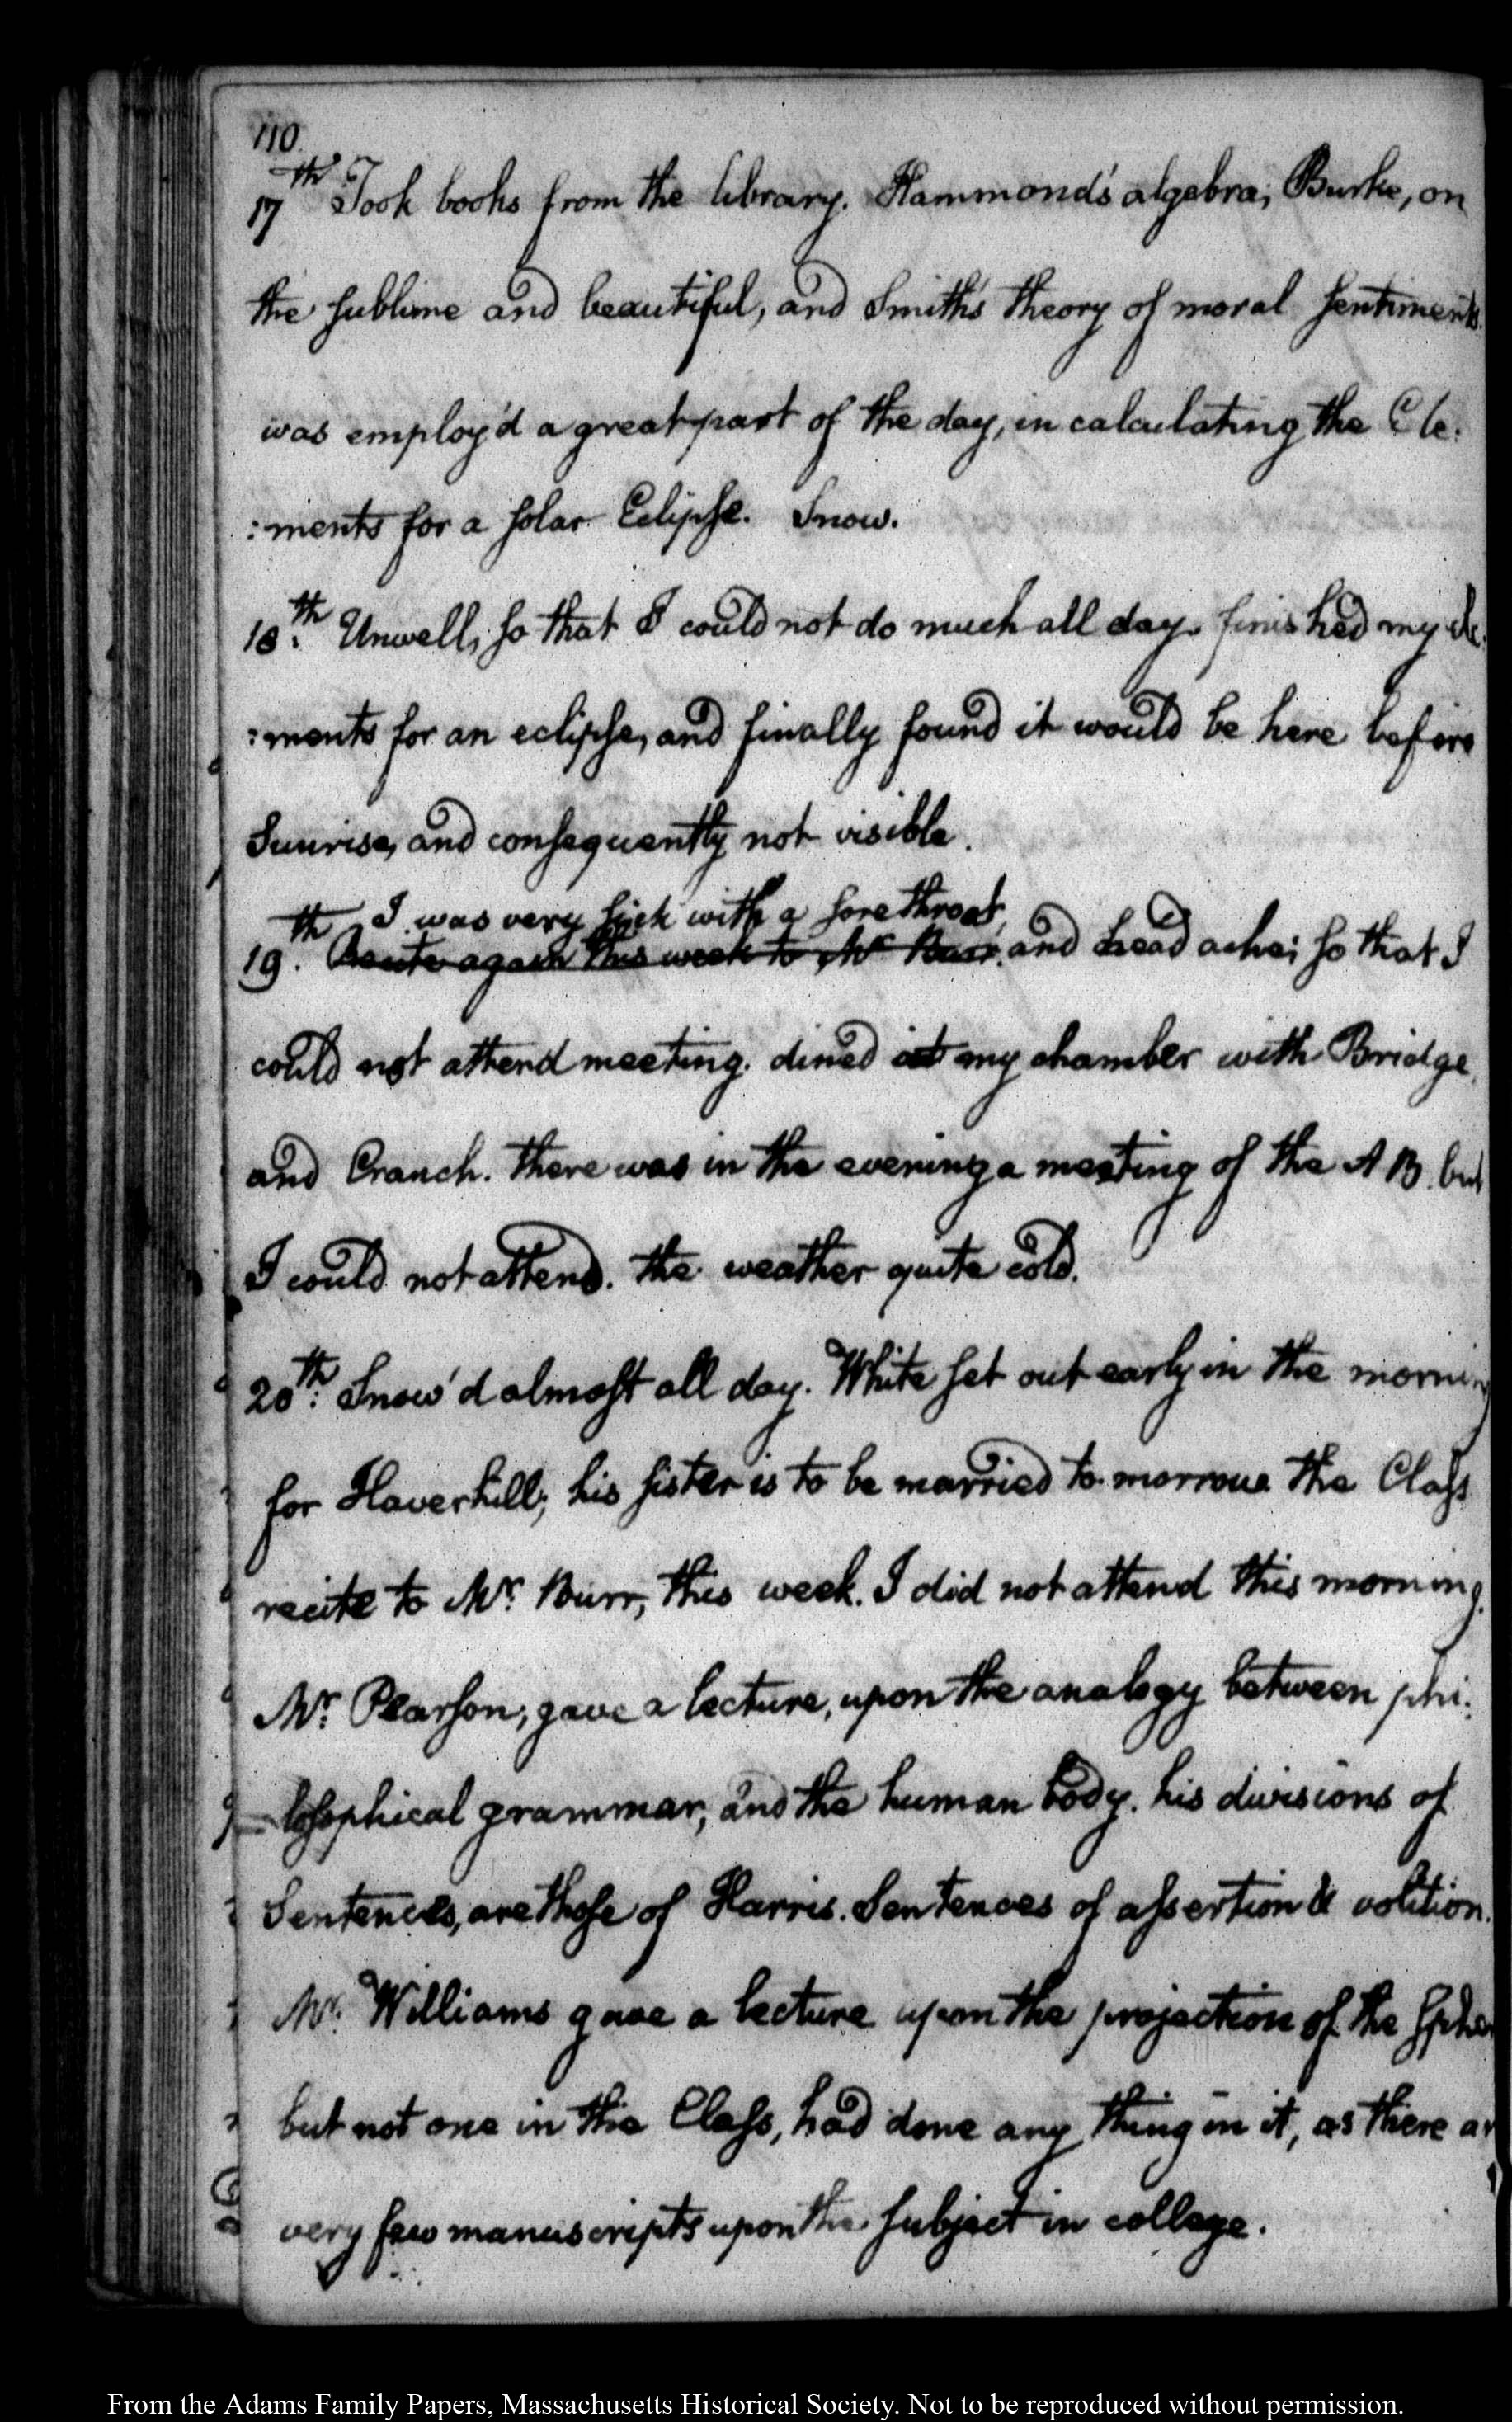 110.
17th Took books from the library. Hammond's algebra; Burke, on
the sublime and beautiful, and Smith's theory of moral sentiments.
was employ'd a great part of the day, in calculating the Ele:
:ments for a solar Eclipse. Snow.
18th: Unwell, so that I could not do much all day. finished my ele:
:ments for an eclipse, and finally found it would be here before
Sunrise, and consequently not visible.
I was very sick with a sore throat,
19th. Recite again this week to Mr Burr. and head ache; so that I
could not attend meeting. dined at my chamber with Bridge,
and Cranch. There was in the evening a meeting of the A B. but
I could not attend. The weather quite cold.
20th: Snow'd almost all day. White set out early in the morning
for Haverhill; his sister is to be married to-morrow. The Class
recite to Mr. Burr, this week. I did not attend this morning.
Mr. Pearson, gave a lecture, upon the analogy between phi:
losophical grammar, and the human body. his divisions of
Sentences, are those of Harris. Sentences of assertion & volition.
Mr. Williams gave a lecture upon the projection of the Spher
but not one in the Class, had done any thing in it, as there ar
very few manuscripts upon the subject in college.
From the Adams Family Papers, Massachusetts Historical Society. Not to be reproduced without permission.